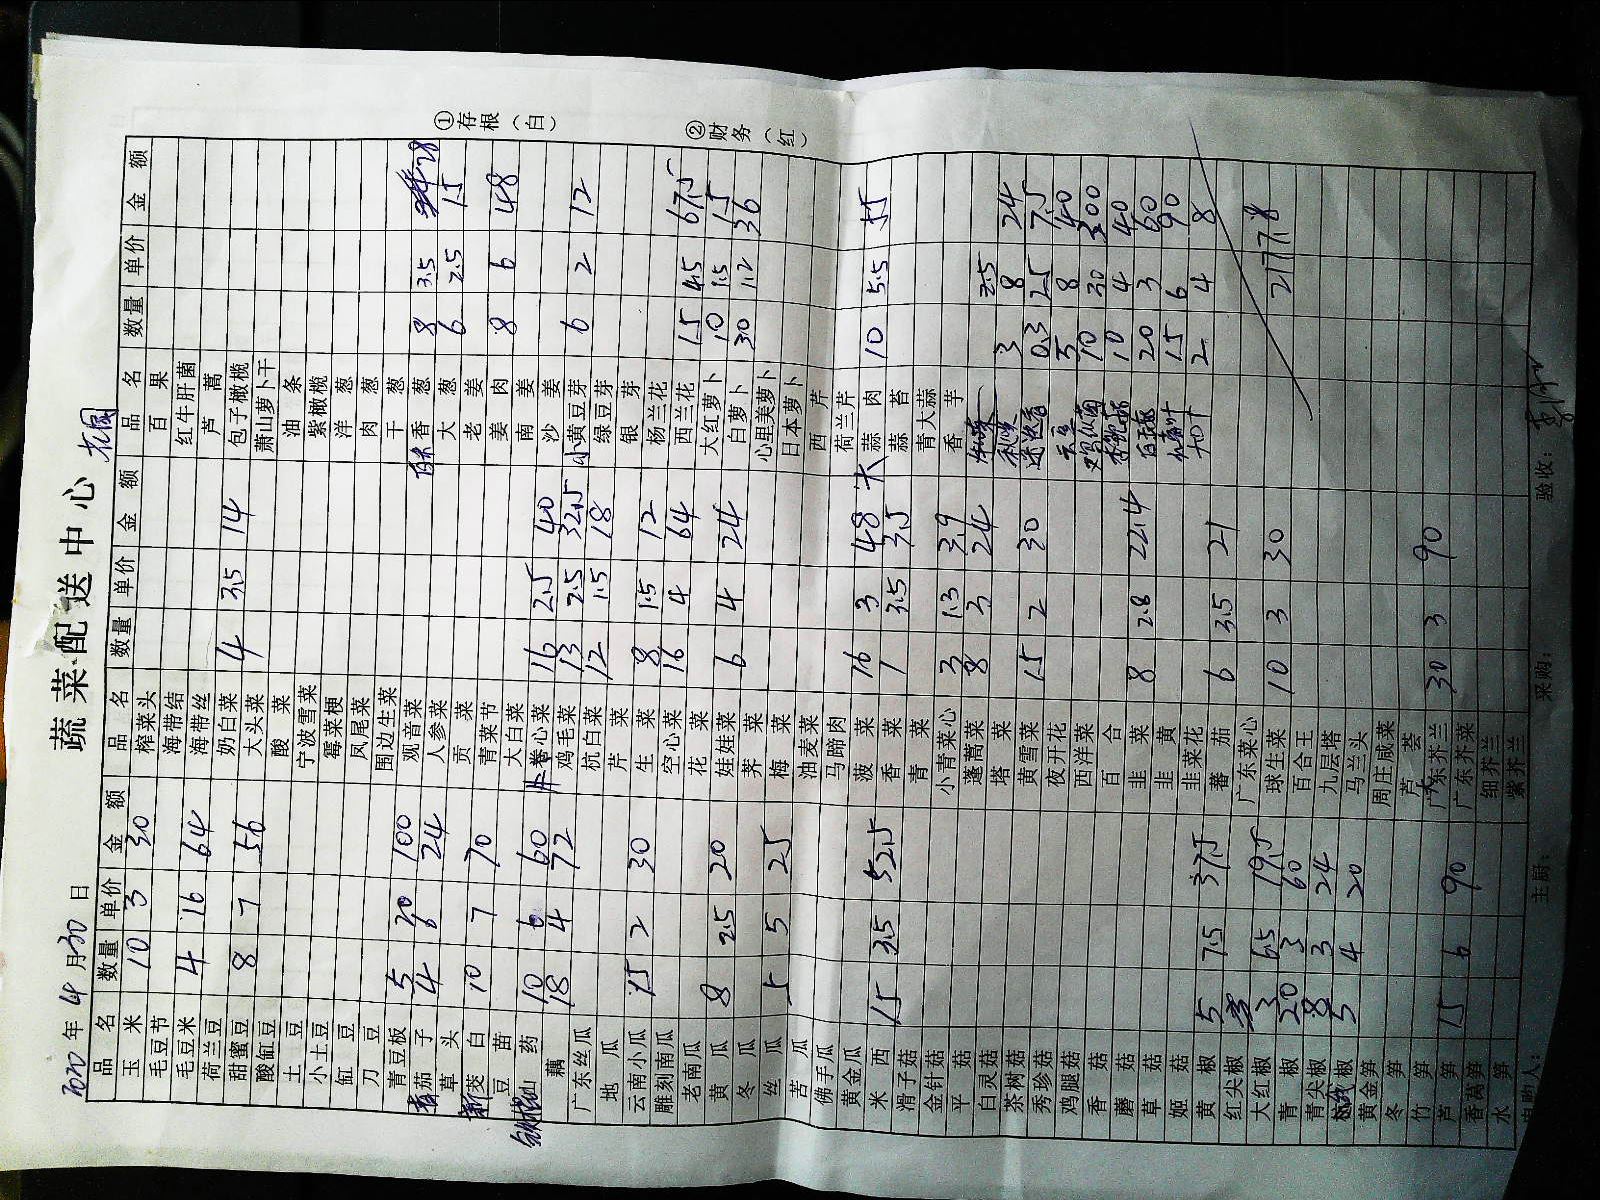 蔬菜配送中心
2020年4月30日 花园
品名 数量 单价 金额 品名 数量 单价 金额 品名 数量 单价 金额
玉米 10 3 30 榨菜头 百果
毛豆节 海带结 红牛肝菌
毛豆米 4 16 64 海带丝 芦蒿
荷兰豆 奶白菜 4 3.5 14 包子橄榄
甜蜜豆 8 7 56 大头菜 萧山萝卜干
酸豇豆 酸菜 油条
土豆 宁波雪菜 紫橄榄
小土豆 霉菜梗 洋葱
豇豆 凤尾菜 肉葱
刀豆 围边生菜 干葱
青豆板 5 20 100 观音菜 香葱 8 3.5 28
茄子 4 6 24 人参菜 大葱 6 2.5 15
草头 贡菜 老姜
茭白 10 7 70 青菜节 姜肉 8 6 48
豆苗 大白菜 南姜
山药 10 6 60 卷心菜 16 2.5 40 沙姜
藕 18 4 72 鸡毛菜 13 2.5 32.5 小黄豆芽 6 2 12
广东丝瓜 杭白菜 12 1.5 18 绿豆芽
地瓜 芹菜 银芽
云南小瓜 15 2 30 生菜 8 1.5 12 杨兰花
雕刻南瓜 空心菜 16 4 64 西兰花 15 4.5 67.5
老南瓜 花菜 大红萝卜 10 1.5 15
黄瓜 8 2.5 20 娃娃菜 6 4 24 白萝卜 30 1.2 36
冬瓜 荠菜 心里美萝卜
丝瓜 5 5 25 梅菜 日本萝卜
苦瓜 油麦菜 西芹
佛手瓜 马蹄肉 荷兰芹
黄金瓜 菠菜 16 3 48 大蒜肉 10 5.5 55
米西 15 3.5 52.5 香菜 1 3.5 3.5 蒜苔
滑子菇 青菜 青大蒜
金针菇 小青菜心 3 1.3 3.9 香芋
平菇 蓬蒿菜 8 3 24 2.5
白灵菇 塔菜 秋葵 3 8 24
茶树菇 黄雪菜 15 2 30 迷迭香 0.3 25 7.5
秀珍菇 夜开花 5 8 40
鸡腿菇 西洋菜 10 30 300
香菇 百合 10 4 40
蘑菇 韭菜 8 2.8 22.4 20 3 60
草菇 韭黄 15 6 90
姬菇 韭菜花 2 4 8
黄椒 5 7.5 37.5 蕃茄 6 3.5 21
红尖椒 广东菜心
大红椒 3 6.5 19.5 球生菜 10 3 30 2177.8
青椒 20 3 60 百合王
青尖椒 8 3 24 九层塔
椒 5 4 20 马兰头
黄金笋 周庄咸菜
冬笋 芦荟
竹笋 广东芥兰 30 3 90
芦笋 15 6 90 广东芥菜
香莴笋 细芥兰
水笋 紫芥兰
主厨： 采购： 验收：
①存根（白）
②财务（红）